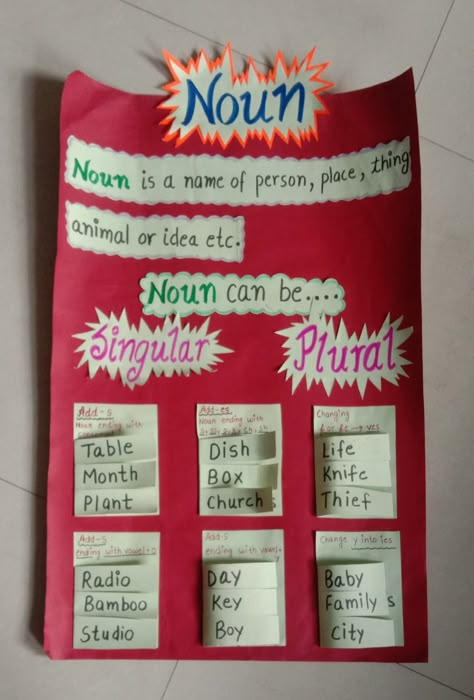 Noun
Noun is a name of person, place, thing
animal or idea etc.
Noun can be....
Singular
Plural
Add-s
Noun ending with
Table
Month
Plant
Add-es
Noun ending with
Dish
Box
Church
Changing
f or fe → ves
Life
Knife
Thief
Add-s
ending with vowel+o
Radio
Bamboo
Studio
Add-s
ending with vowel+
Day
Key
Boy
Change y into ies
Baby
Family s
City